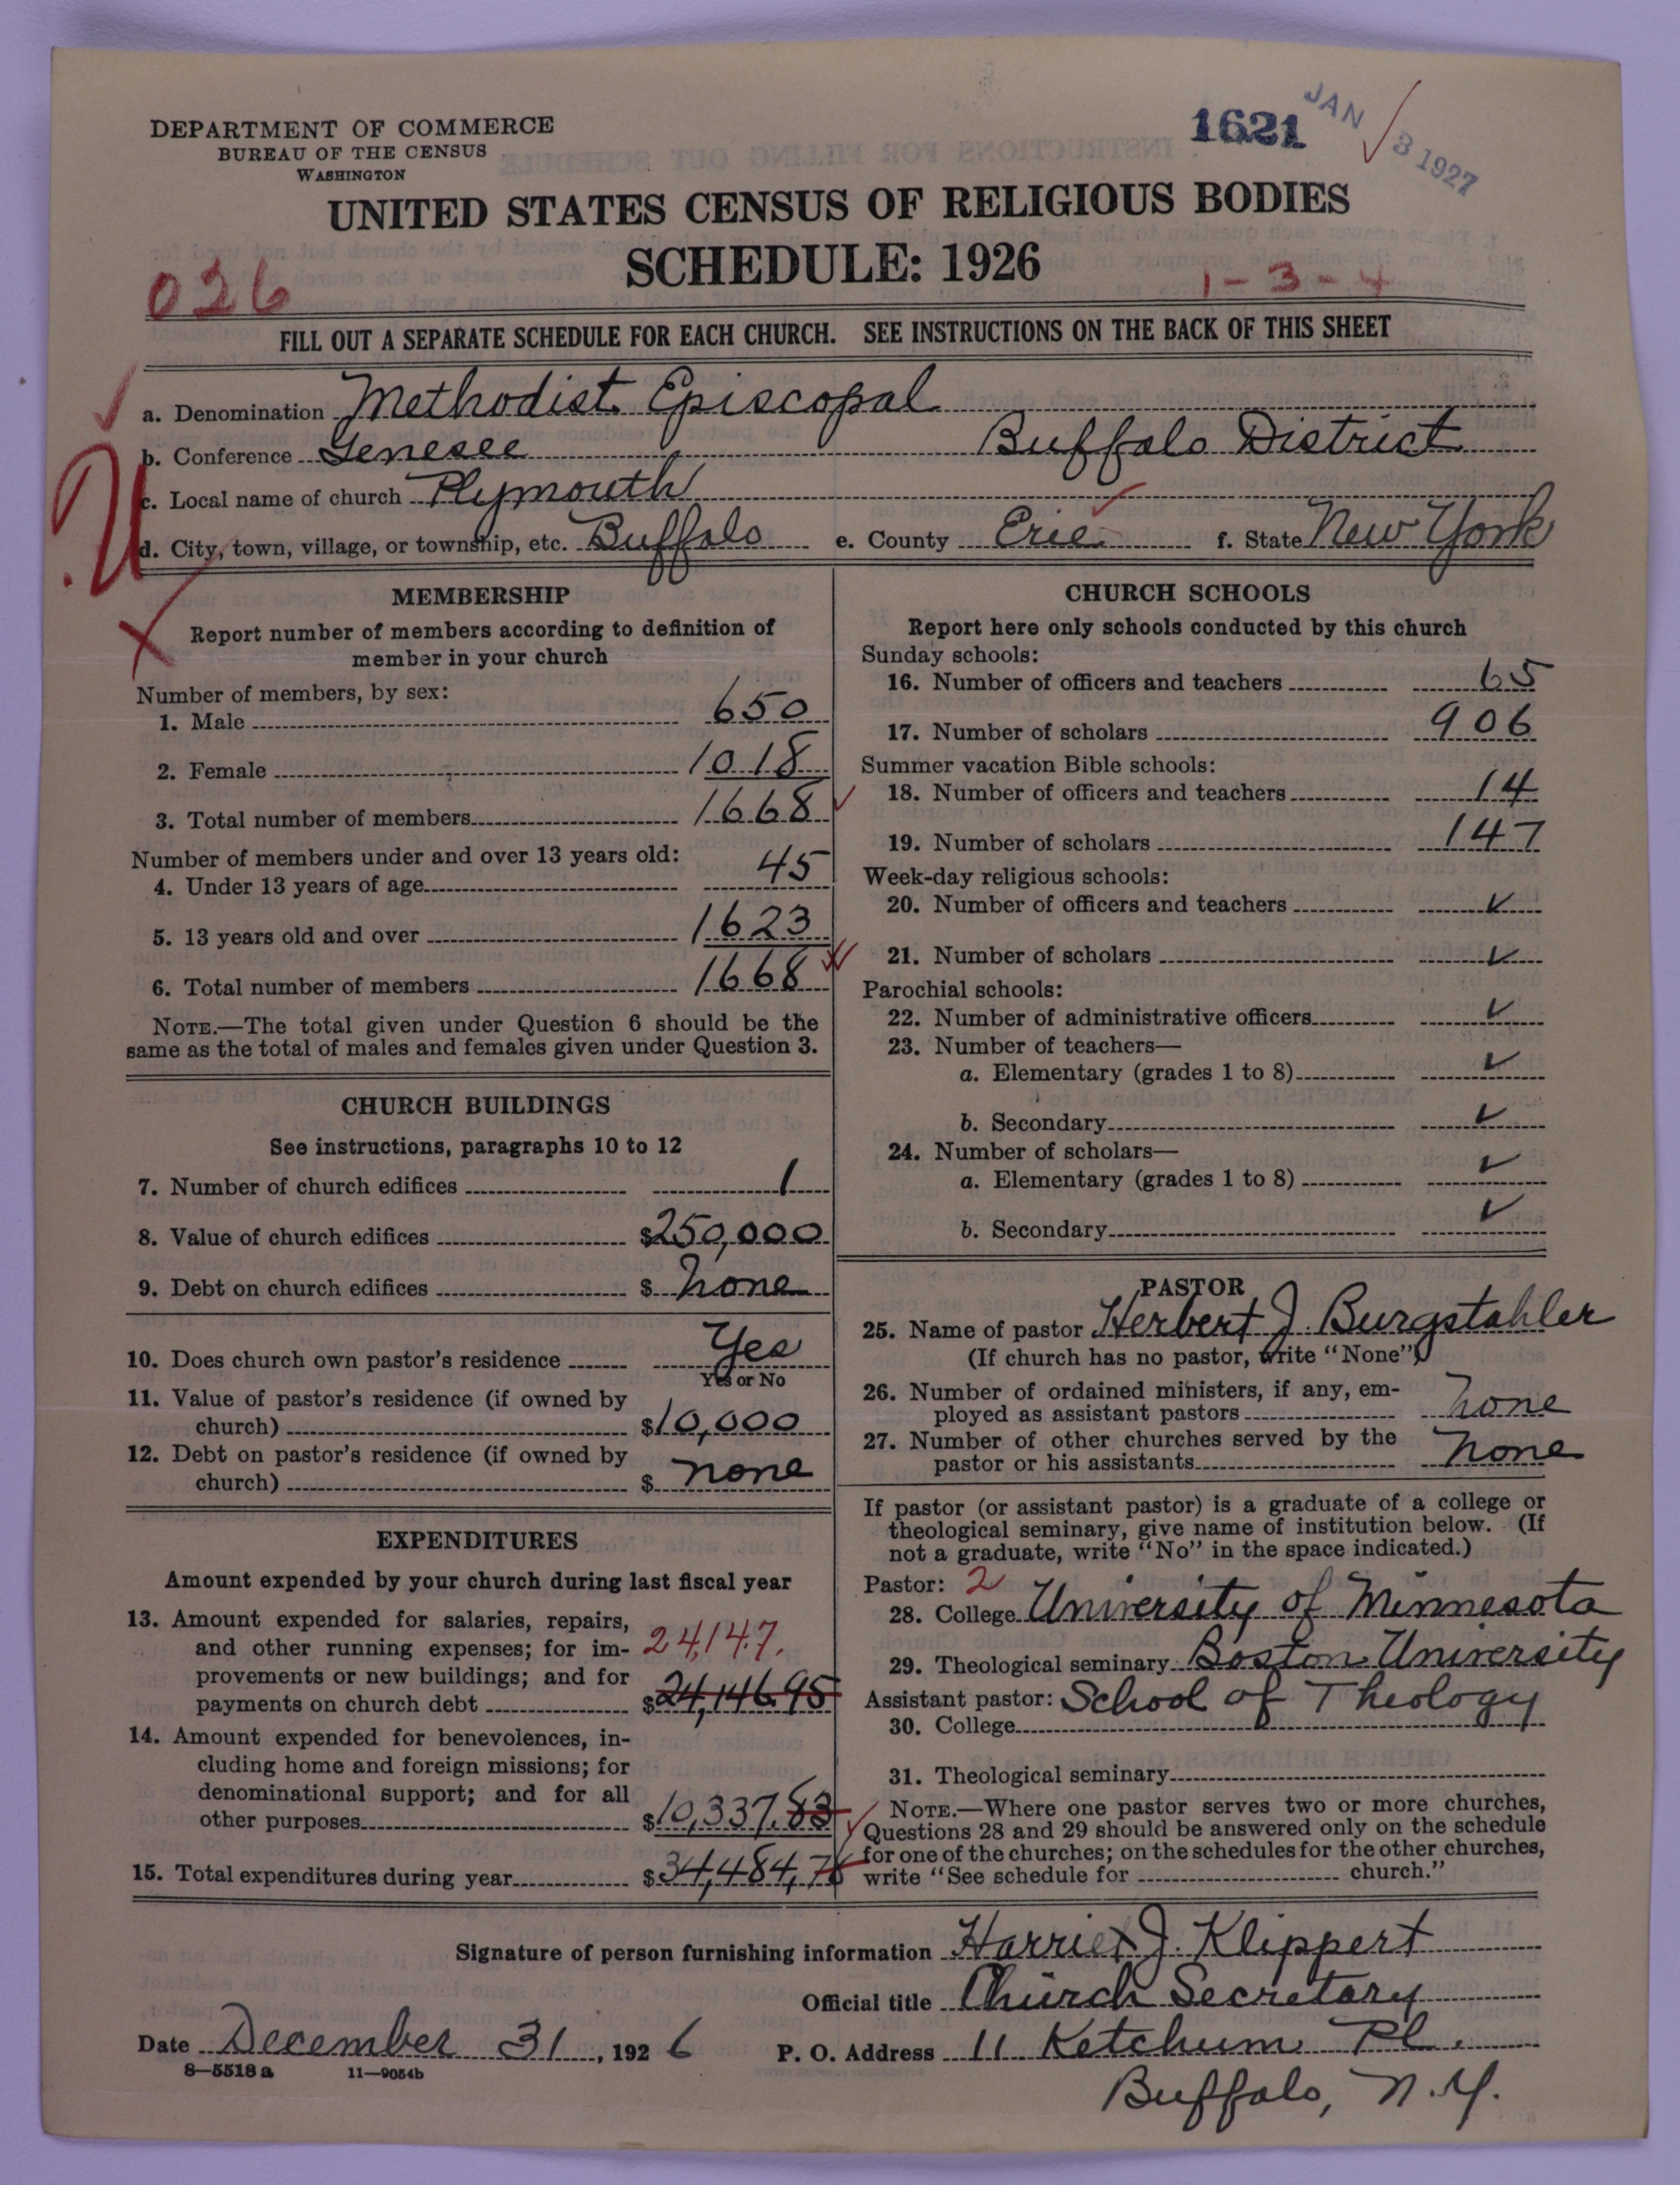 DEPARTMENT OF COMMERCE
BUREAU OF THE CENSUS
WASHINGTON
1621
JAN 3 1927
UNITED STATES CENSUS OF RELIGIOUS BODIES
SCHEDULE: 1926
026
1-3-4
FILL OUT A SEPARATE SCHEDULE FOR EACH CHURCH. SEE INSTRUCTIONS ON THE BACK OF THIS SHEET
a. Denomination Methodist Episcopal
b. Conference Genesee Buffalo District
c. Local name of church Plymouth
d. City, town, village, or township, etc. Buffalo e. County Erie f. State New York
MEMBERSHIP
Report number of members according to definition of
member in your church
Number of members, by sex:
1. Male 650
2. Female 1018
3. Total number of members 1668
Number of members under and over 13 years old:
4. Under 13 years of age 45
5. 13 years old and over 1623
6. Total number of members 1668
NOTE.—The total given under Question 6 should be the
same as the total of males and females given under Question 3.
CHURCH BUILDINGS
See instructions, paragraphs 10 to 12
7. Number of church edifices 1
8. Value of church edifices $250,000
9. Debt on church edifices $ none
10. Does church own pastor's residence Yes
Yes or No
11. Value of pastor's residence (if owned by
church) $10,000
12. Debt on pastor's residence (if owned by
church) $ none
EXPENDITURES
Amount expended by your church during last fiscal year
13. Amount expended for salaries, repairs,
and other running expenses; for im- 24,147.
provements or new buildings; and for
payments on church debt $24,146.95
14. Amount expended for benevolences, in-
cluding home and foreign missions; for
denominational support; and for all
other purposes $10,337.83
15. Total expenditures during year $34,484,78
CHURCH SCHOOLS
Report here only schools conducted by this church
Sunday schools:
16. Number of officers and teachers 65
17. Number of scholars 906
Summer vacation Bible schools:
18. Number of officers and teachers 14
19. Number of scholars 147
Week-day religious schools:
20. Number of officers and teachers ✓
21. Number of scholars ✓
Parochial schools:
22. Number of administrative officers ✓
23. Number of teachers—
a. Elementary (grades 1 to 8) ✓
b. Secondary ✓
24. Number of scholars—
a. Elementary (grades 1 to 8) ✓
b. Secondary ✓
PASTOR
25. Name of pastor Herbert J. Burgstahler
(If church has no pastor, write "None")
26. Number of ordained ministers, if any, em-
ployed as assistant pastors none
27. Number of other churches served by the
pastor or his assistants none
If pastor (or assistant pastor) is a graduate of a college or
theological seminary, give name of institution below. (If
not a graduate, write "No" in the space indicated.)
Pastor: 2
28. College University of Minnesota
29. Theological seminary Boston University
Assistant pastor: School of Theology
30. College
31. Theological seminary
NOTE.—Where one pastor serves two or more churches,
Questions 28 and 29 should be answered only on the schedule
for one of the churches; on the schedules for the other churches,
write "See schedule for church."
Signature of person furnishing information Harriet J. Klippert
Official title Church Secretary
Date December 31, 1926 P. O. Address 11 Ketchum Pl.
8—5518 a 11—9054b
Buffalo, N.Y.